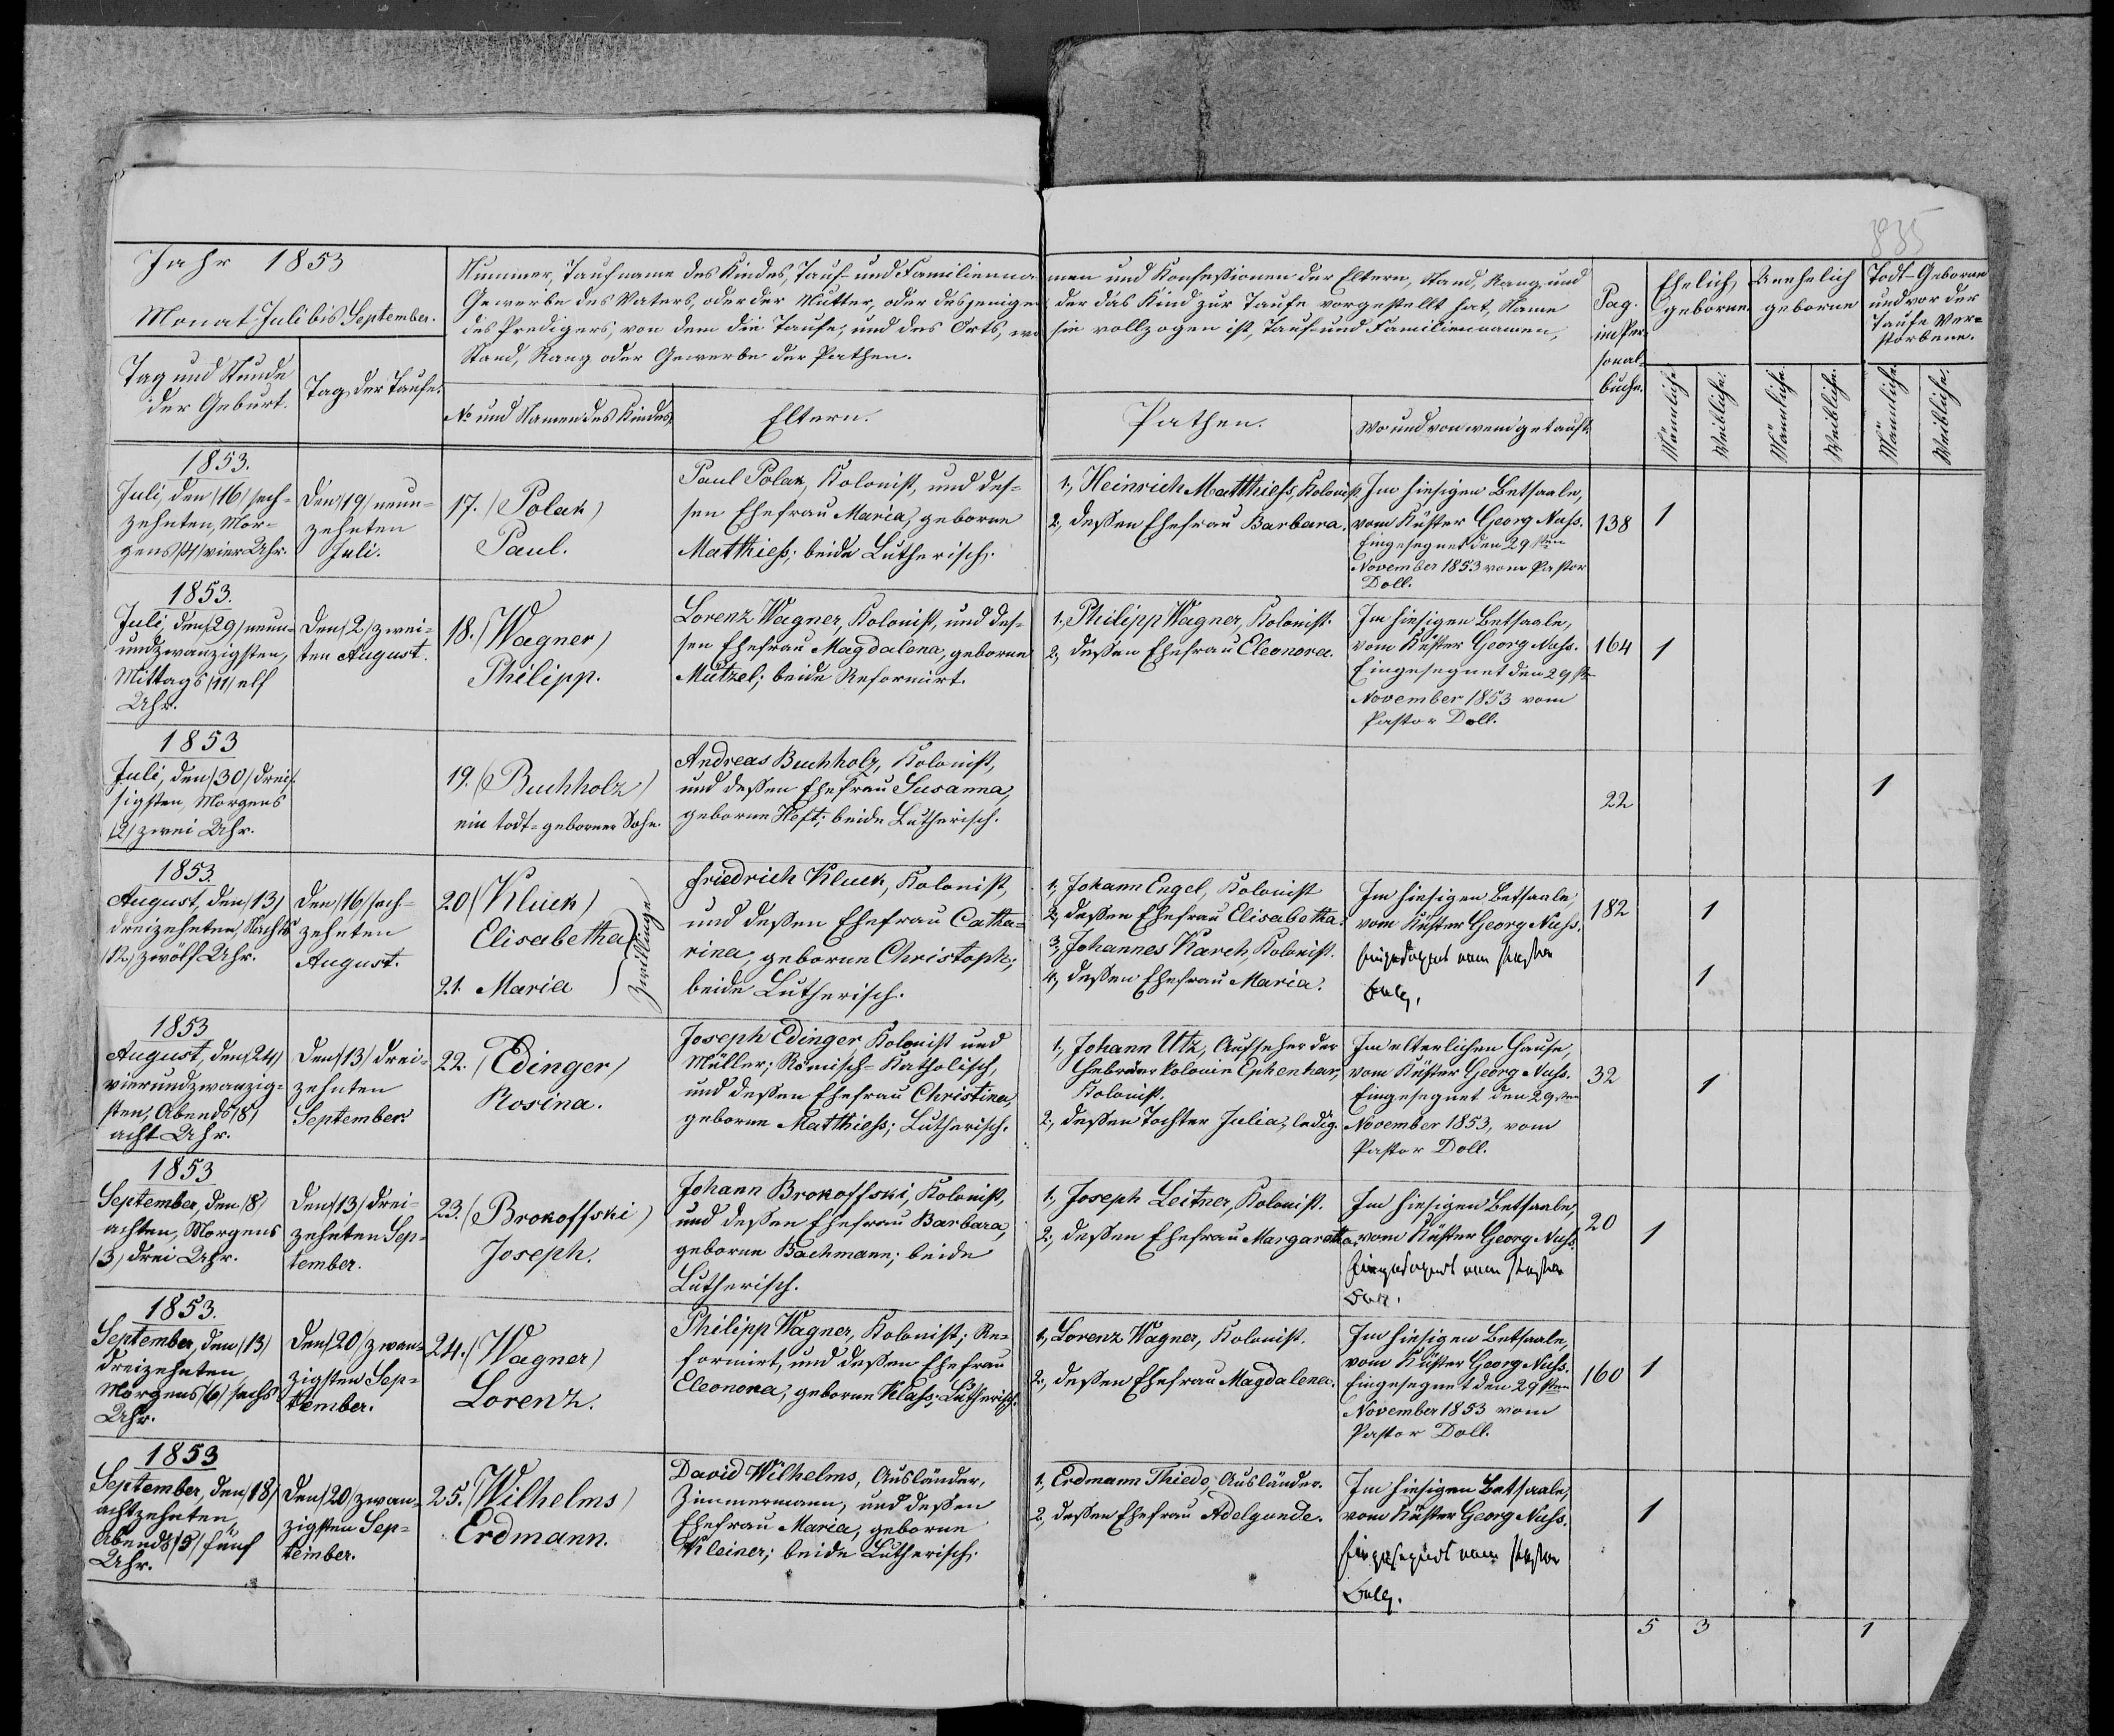 835
Jahr 1853
Monat Juli bis September.
Nummer, Taufname des Kindes, Tauf- und Familiennamen und Konfessionen der Eltern, Stand, Rang und
Gewerbe des Vaters, oder der Mutter, oder desjenigen der das Kind zur Taufe vorgestellt hat, Name
des Predigers, von dem die Taufe, und des Orts, wo sie vollzogen ist, Tauf- und Familiennamen,
Stand, Rang oder Gewerbe der Pathen.
Pag.
im Per
sonal-
buche.
Ehelich
geborne
Unehelich
geborne
Todt-Geborne
und vor der
Taufe Ver-
storbene.
Tag und Stunde
der Geburt.
Tag der Taufe.
No und Namen des Kindes
Eltern.
Pathen.
Wo und von wem getauft.
Männliche
Weibliche.
Männliche.
Weibliche.
Männliche.
Weibliche.
1853.
Juli, den /16/ sech-
zehnten, Mor-
gens /4/ vier Uhr.
Den /19/ neun-
zehnten
Juli.
17. (Polak)
Paul.
Paul Polak, Kolonist, und des-
sen Ehefrau Maria, geborne
Matthiess; beide Lutherisch.
1., Heinrich Matthiess, Kolonist
2., dessen Ehefrau Barbara.
Im hiesigen Betsaale,
vom Küster Georg Nuss.
Eingesegnet den 29sten
November 1853 vom Pastor
Doll.
138
1
1853.
Juli, den /29/ neun-
undzwanzigsten,
Mittags /11/ elf
Uhr.
Den /2/ zwei-
ten August.
18. (Wagner)
Philipp.
Lorenz Wagner, Kolonist, und des-
sen Ehefrau Magdalena, geborne
Mützel; beide Reformirt.
1., Philipp Wagner, Kolonist.
2., dessen Ehefrau Eleonora.
Im hiesigen Betsaale,
vom Küster Georg Nuss.
Eingesegnet den 29st
November 1853 vom
Pastor Doll.
164
1
1853
Juli, den /30/ dreis-
sigsten, Morgens
/2/ zwei Uhr.
19. (Buchholz)
ein todt-geborner Sohn.
Andreas Buchholz, Kolonist,
und dessen Ehefrau Susanna,
geborne Heft; beide Lutherisch.
22
1
1853.
August, den /13/
dreizehnten, Nachts
/12/ zwölf Uhr.
Den /16/ sech-
zehnten
August.
20 (Kluck)
Elisabetha
21. Maria
Zwillinge
Friedrich Kluck, Kolonist,
und dessen Ehefrau Catha-
rina, geborne Christoph;
beide Lutherisch.
1., Johann Engel, Kolonist
2., dessen Ehefrau Elisabetha.
3., Johannes Karch, Kolonist.
4., dessen Ehefrau Maria.
Im hiesigen Betsaale,
vom Küster Georg Nuss.
Eingesegnet vom Pastor
182
1
1
1853
August, den /24/
vierundzwanzig-
sten, Abends /8/
acht Uhr.
Den /13/ drei-
zehnten
September.
22. (Edinger)
Rosina.
Joseph Edinger Kolonist und
Müller; Römisch-Katholisch,
und dessen Ehefrau Christina,
geborne Matthiess; Lutherisch.
1., Johann Utz, Aufseher der
Hebräer kolonie Ephenhar,
Kolonist.
2., dessen Tochter Julia, ledig.
Im elterlichen Hause,
vom Küster Georg Nuss.
Eingesegnet den 29sten
November 1853, vom
Pastor Doll.
32
1
1853
September, den /8/
achten, Morgens
/3/ drei Uhr.
Den /13/ drei-
zehnten Sep-
tember.
23. (Brokoffski)
Joseph.
Johann Brokoffski, Kolonist,
und dessen Ehefrau Barbara,
geborne Bachmann; beide
Lutherisch.
1., Joseph Leitner, Kolonist.
2., dessen Ehefrau Margaretha.
Im hiesigen Betsaale,
vom Küster Georg Nuss.
Eingesegnet vom Pastor
20
1
1853.
September, den /13/
dreizehnten,
Morgens /6/ sechs
Uhr.
Den /20/ zwan-
zigsten Sep-
tember.
24. (Wagner)
Lorenz.
Philipp Wagner, Kolonist; Re-
formirt, und dessen Ehefrau
Eleonora, geborne Klass; Lutherisch.
1., Lorenz Wagner, Kolonist.
2., dessen Ehefrau Magdalena.
Im hiesigen Betsaale,
vom Küster Georg Nuss.
Eingesegnet den 29sten
November 1853 vom
Pastor Doll.
160
1
1853
September, den /18/
achtzehnten,
Abends /5/ fünf
Uhr.
Den /20/ zwan-
zigsten Sep-
tember.
25. (Wilhelms)
Erdmann.
David Wilhelms, Ausländer,
Zimmermann, und dessen
Ehefrau Maria, geborne
Kleiner; beide Lutherisch.
1., Erdmann Thiede, Ausländer.
2., dessen Ehefrau Adelgunde.
Im hiesigen Betsaale,
vom Küster Georg Nuss.
Eingesegnet vom Pastor
1
5
3
1